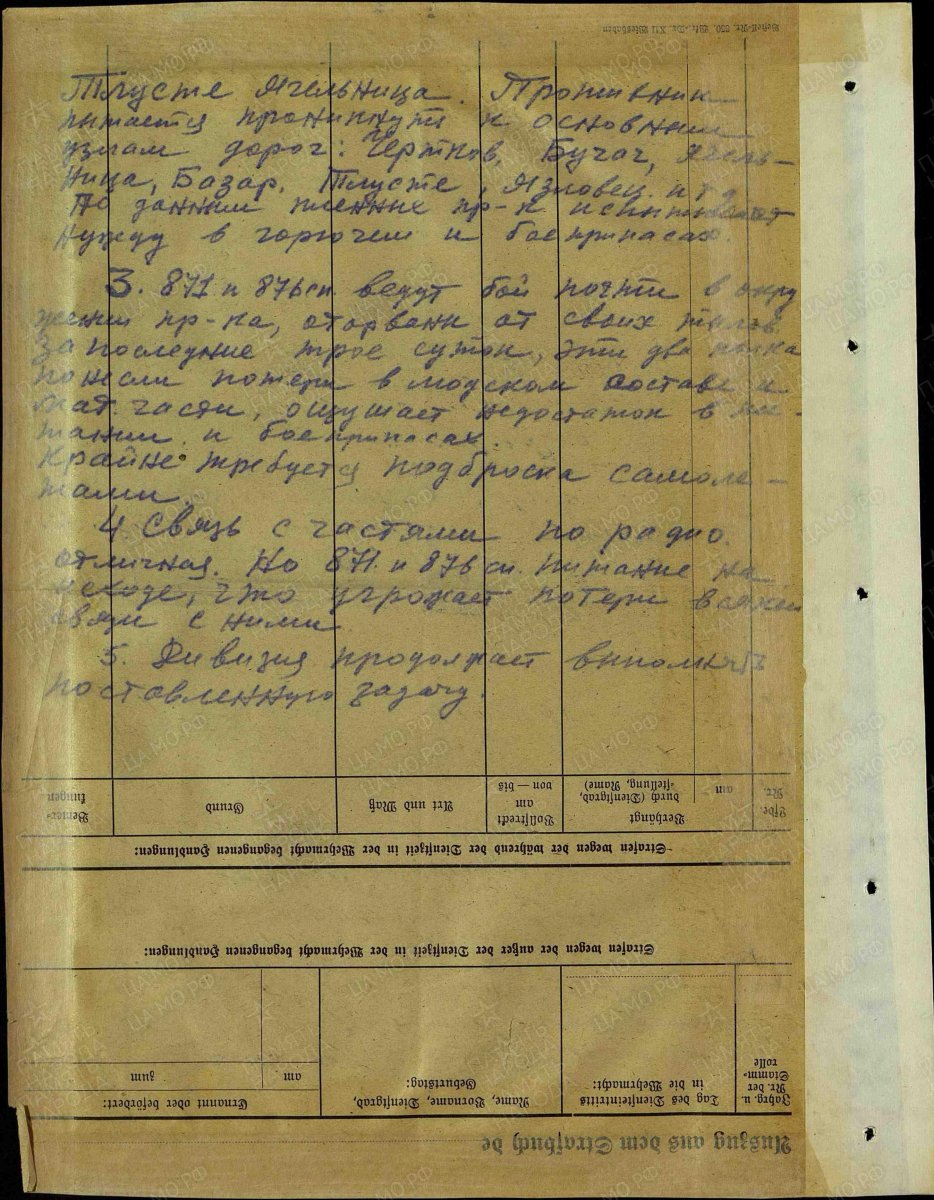 Тлусте Ягельница. Противник
пытается проникнуть к основным
узлам дорог: Чертков, Бучач, Ягель-
ница, Базар, Тлусте, Язловец и т д
По данным пленных пр-к испытывает
нужду в горючем и боеприпасах.
3. 871 и 876 сп. ведут бой почти в окру
жении пр-ка, оторваны от своих тылов.
За последние трое суток, эти два полка
понесли потери в людском составе и
мат. части, ощущает недостаток в пи-
тании и боеприпасах.
Крайне требуется подброска самоле-
тами.
4. Связь с частями по радио.
отличная. Но 871 и 876 сп. питание на
исходе, что угрожает потери всякой
связи с ними
5. Дивизия продолжает выполнять
поставленную задачу.
Bemer-
kungen
Grund
Art und Maß
Vollstreckt
am
von — bis
Verhängt
durch (Dienstgrad,
-stellung, Name)
am
Lfde
Nr.
Strafen wegen der während der Dienstzeit in der Wehrmacht begangenen Handlungen:
Strafen wegen der außer der Dienstzeit in der Wehrmacht begangenen Handlungen:
Ernannt oder befördert:
zum
am
Name, Vorname, Dienstgrad,
Geburtstag:
Tag des Diensteintritts
in die Wehrmacht:
Jahrg. u.
Nr. der
Stamm-
rolle
Auszug aus dem Strafbuch de